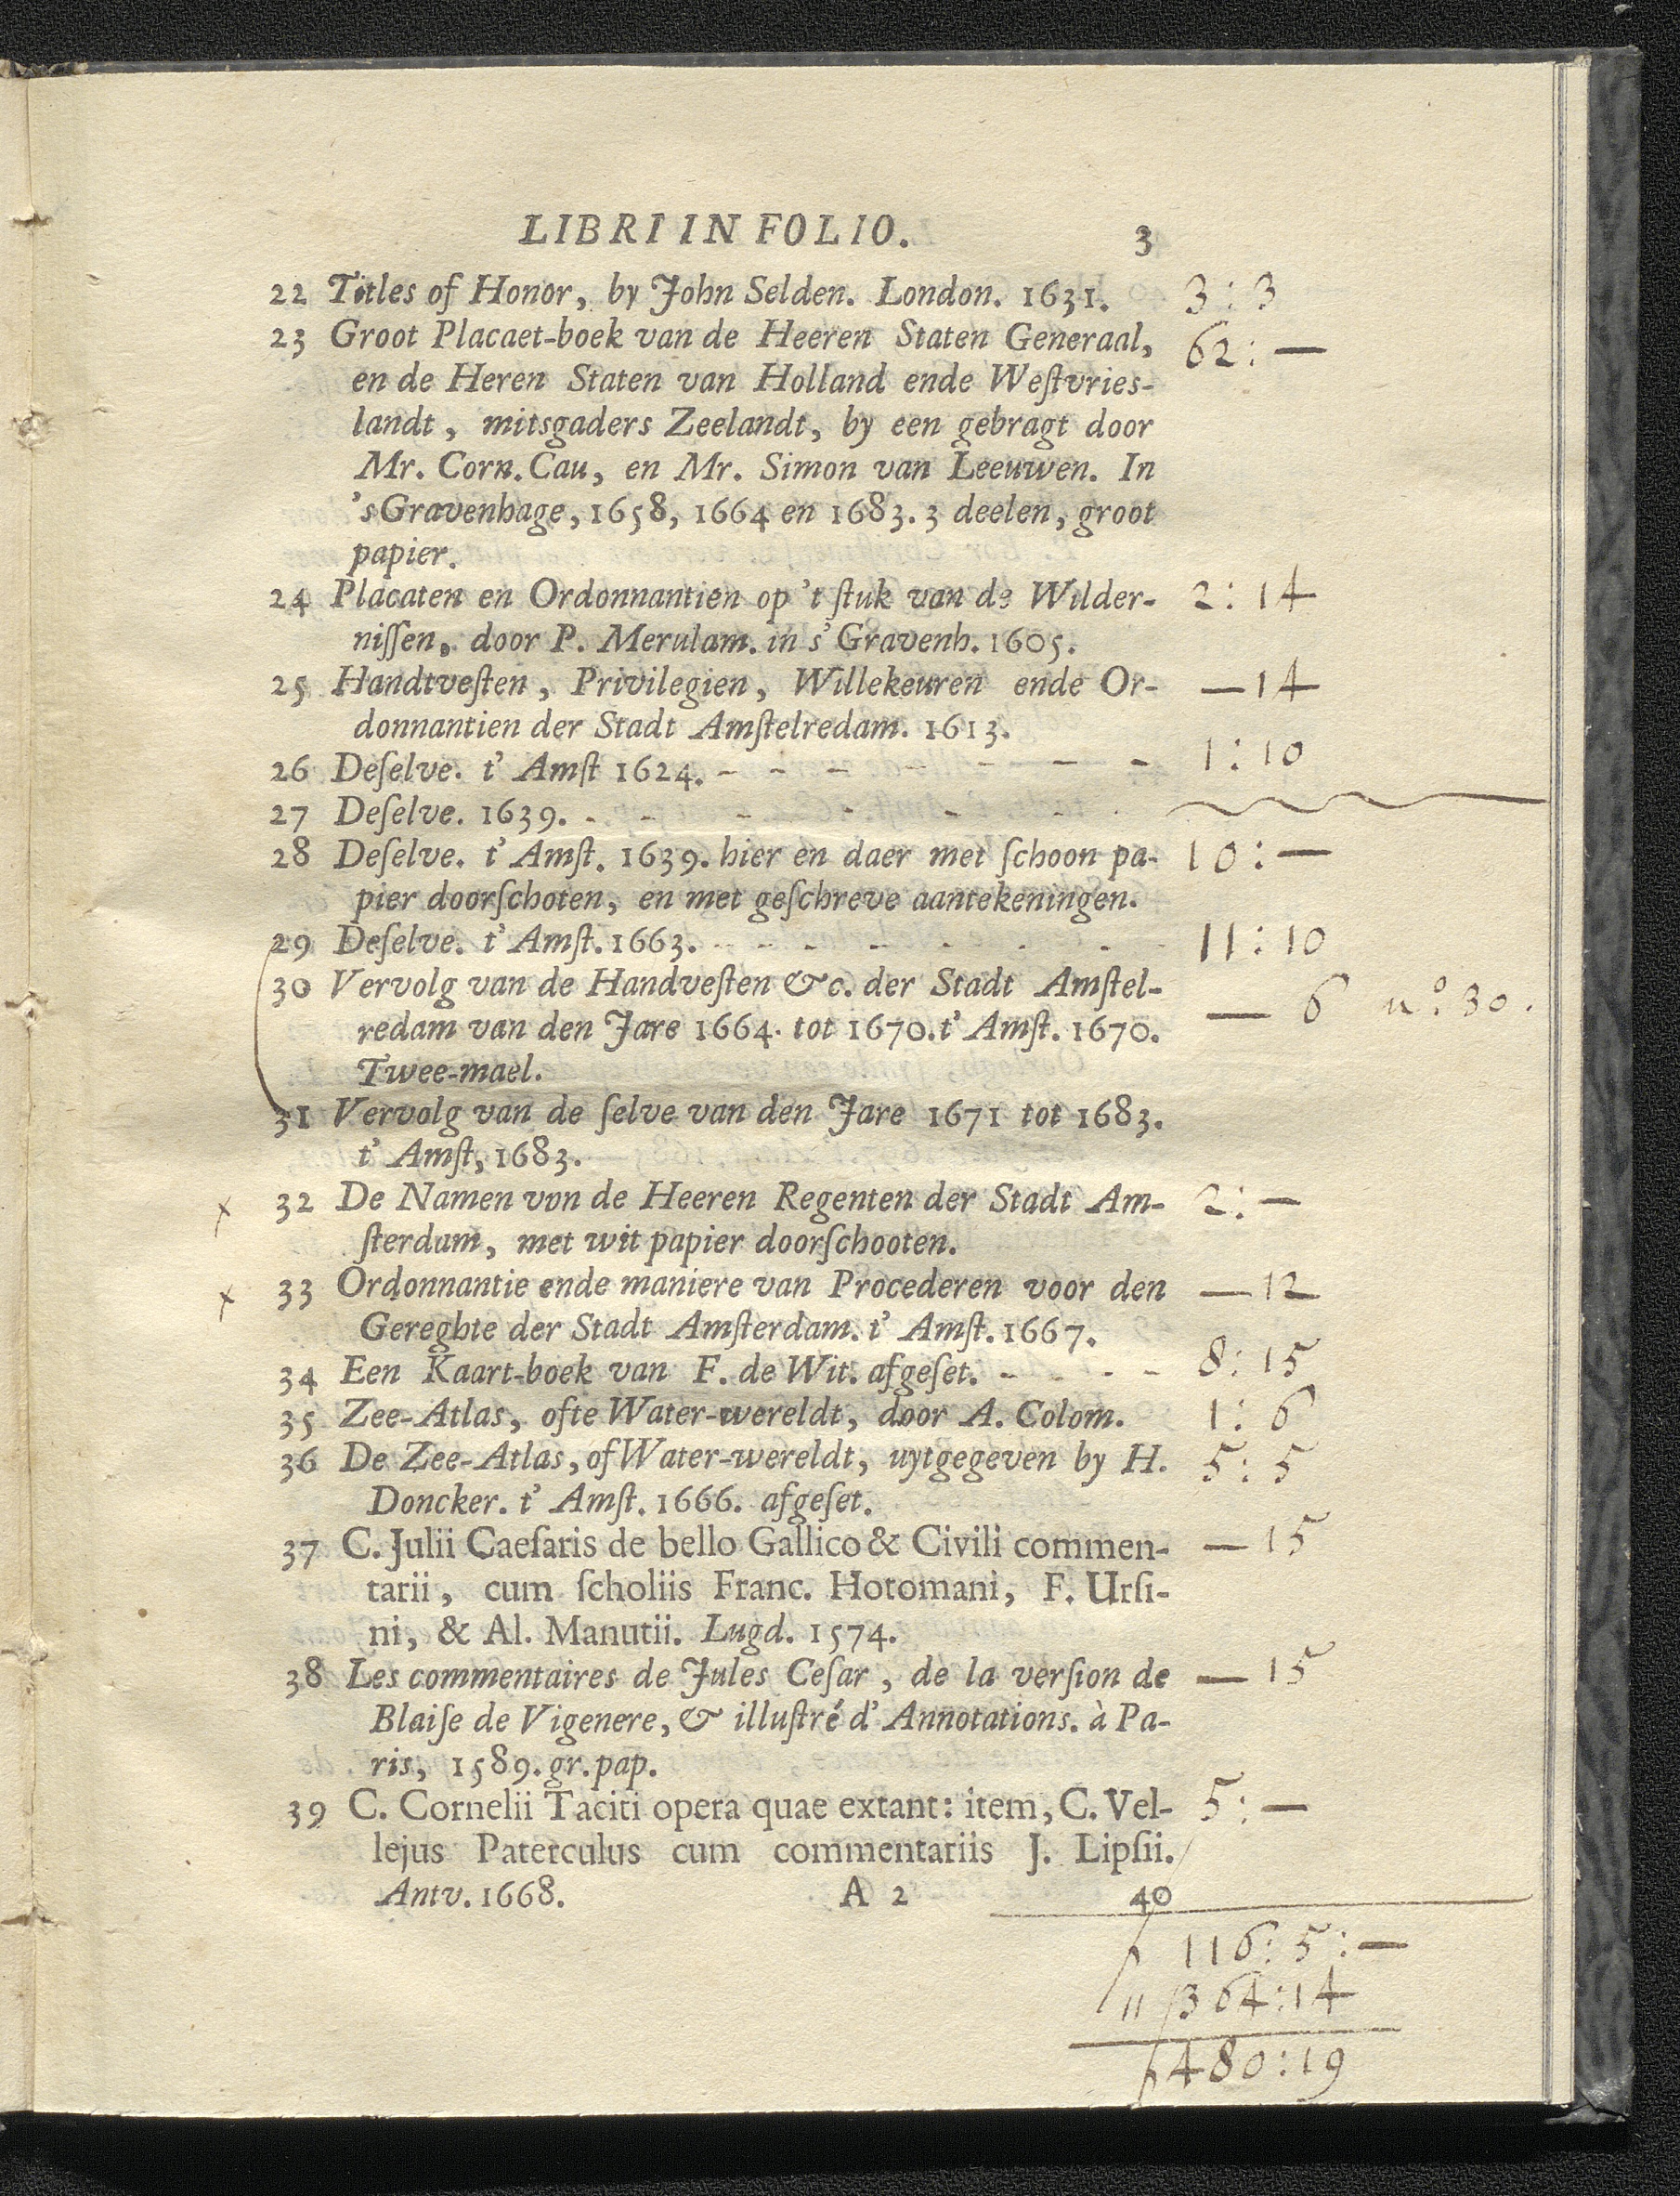 LIBRI IN FOLIO. 3
22 Titles of Honor, by John Selden. London. 1631. 3 : 3
23 Groot Placaet-boek van de Heeren Staten Generaal, 62 : —
en de Heren Staten van Holland ende Weſtvries-
landt, mitsgaders Zeelandt, by een gebragt door
Mr. Corn. Cau, en Mr. Simon van Leeuwen. In
'sGravenhage, 1658, 1664 en 1683. 3 deelen, groot
papier.
24 Placaten en Ordonnantien op 't ſtuk van de Wilder- 2 : 14
niſſen, door P. Merulam. in s' Gravenh. 1605.
25 Handtveſten, Privilegien, Willekeuren ende Or- — 14
donnantien der Stadt Amſtelredam. 1613.
26 Deſelve. t' Amſt 1624. - - - - - - - 1 : 10
27 Deſelve. 1639. - - - - - - -
28 Deſelve. t' Amſt. 1639. hier en daer met ſchoon pa- 10 : —
pier doorſchoten, en met geſchreve aantekeningen.
29 Deſelve. t' Amſt. 1663. - - - - - - - 11 : 10
30 Vervolg van de Handveſten &c. der Stadt Amſtel-
redam van den Jare 1664. tot 1670. t' Amſt. 1670. — 6 nº. 30.
Twee-mael.
31 Vervolg van de ſelve van den Jare 1671 tot 1683.
t' Amſt, 1683.
x 32 De Namen von de Heeren Regenten der Stadt Am- 2 : —
ſterdam, met wit papier doorſchooten.
x 33 Ordonnantie ende maniere van Procederen voor den — 12
Gereghte der Stadt Amſterdam. t' Amſt. 1667.
34 Een Kaart-boek van F. de Wit. afgeſet. - - - - 8 : 15
35 Zee-Atlas, ofte Water-wereldt, door A. Colom. 1 : 6
36 De Zee-Atlas, of Water-wereldt, uytgegeven by H. 5 : 5
Doncker. t' Amſt. 1666. afgeſet.
37 C. Julii Caeſaris de bello Gallico & Civili commen- — 15
tarii, cum ſcholiis Franc. Hotomani, F. Urſi-
ni, & Al. Manutii. Lugd. 1574.
38 Les commentaires de Jules Ceſar, de la verſion de — 15
Blaiſe de Vigenere, & illuſtré d' Annotations. à Pa-
ris, 1589. gr. pap.
39 C. Cornelii Taciti opera quae extant: item, C. Vel- 5 : —
lejus Paterculus cum commentariis J. Lipſii.
Antv. 1668. A 2 40
116 : 5 : —
364 : 14
480 : 19